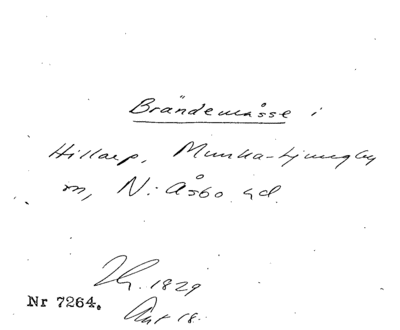 Brändemåsse i
Hillarp, Munka-Ljungby
sn, N. Åsbo hd.
1829
Nr 7264. Akt 18.